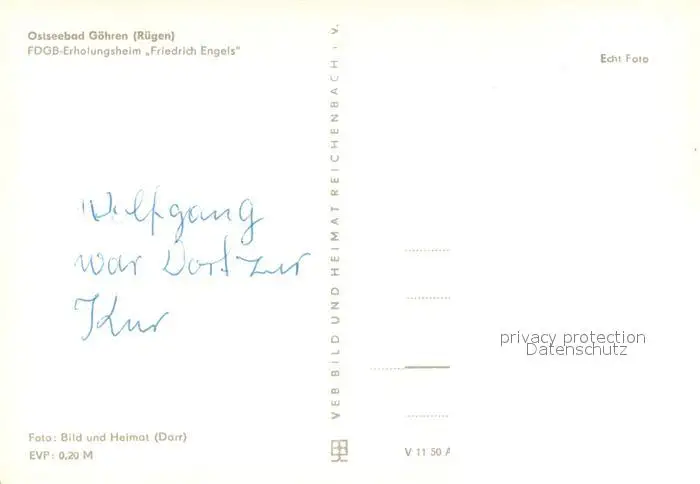 Ostseebad Göhren (Rügen)
FDGB-Erholungsheim „Friedrich Engels"
Echt Foto
Wolfgang
war Dort zur
Kur
VEB BILD UND HEIMAT REICHENBACH i. V.
privacy protection
Datenschutz
Foto: Bild und Heimat (Darr)
EVP: 0,20 M
V 11 50 A